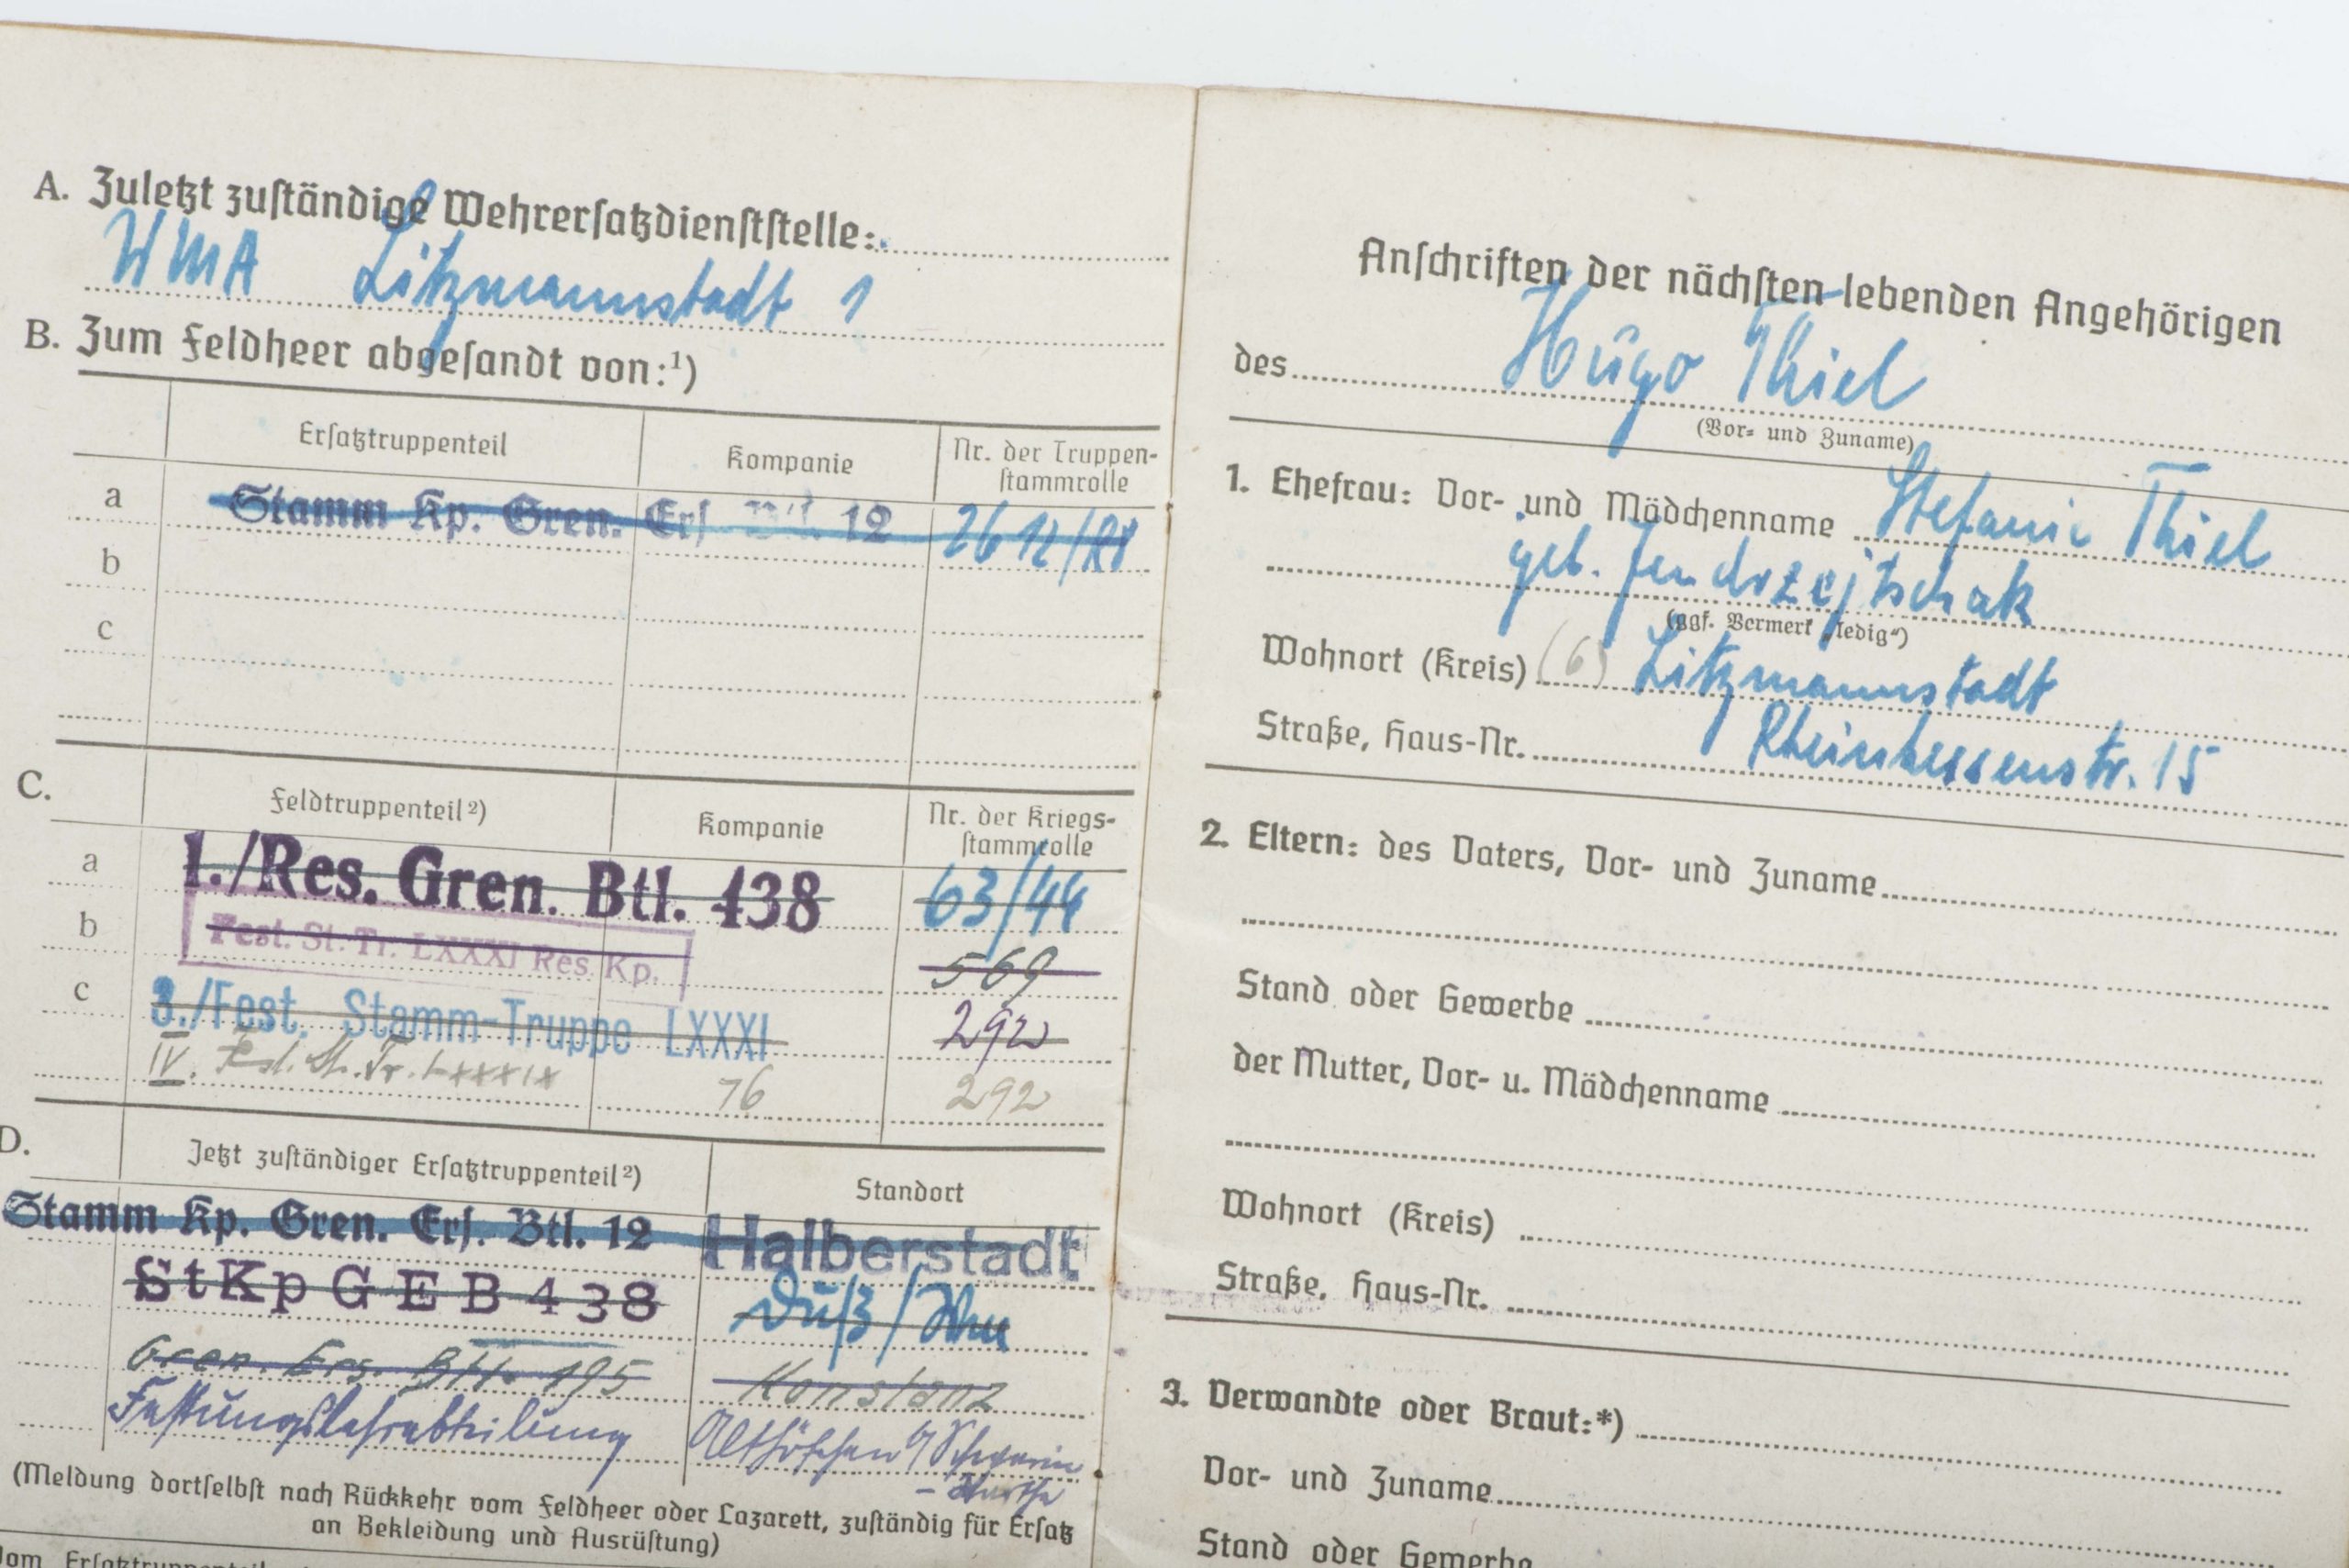 A. Zuletzt zuständige Wehrersatzdienststelle:
WMA Litzmannstadt 1
B. Zum Feldheer abgesandt von:¹)
Ersatztruppenteil Kompanie Nr. der Truppen-
stammrolle
a Stamm Kp. Gren. Ers. Btl. 12 2612/
b
c
C. Feldtruppenteil²) Kompanie Nr. der Kriegs-
stammrolle
a 1./Res. Gren. Btl. 438 63/44
b Fest. St. Tr. LXXXI Res. Kp. 569
c 3./Fest. Stamm-Truppe LXXXI 292
IV. Fest. St. Tr. LXXXIX 76 292
D. Jetzt zuständiger Ersatztruppenteil²) Standort
Stamm Kp. Gren. Ers. Btl. 12 Halberstadt
StKp GEB 438
Gren. Ers. Btl. 195 Konstanz
Festungslehrabteilung Althöfchen b/ Schwerin
- Warthe
(Meldung dortselbst nach Rückkehr vom Feldheer oder Lazarett, zuständig für Ersatz
an Bekleidung und Ausrüstung)
Vom Ersatztruppenteil
Anschriften der nächsten lebenden Angehörigen
des Hugo Thiel
(Vor- und Zuname)
1. Ehefrau: Vor- und Mädchenname Stefanie Thiel
geb. Jendrzejtschak
(ggf. Vermerk „ledig“)
Wohnort (Kreis) (6) Litzmannstadt
Straße, Haus-Nr. Rheinhessenstr. 15
2. Eltern: des Vaters, Vor- und Zuname
Stand oder Gewerbe
der Mutter, Vor- u. Mädchenname
Wohnort (Kreis)
Straße, Haus-Nr.
3. Verwandte oder Braut:*)
Vor- und Zuname
Stand oder Gewerbe